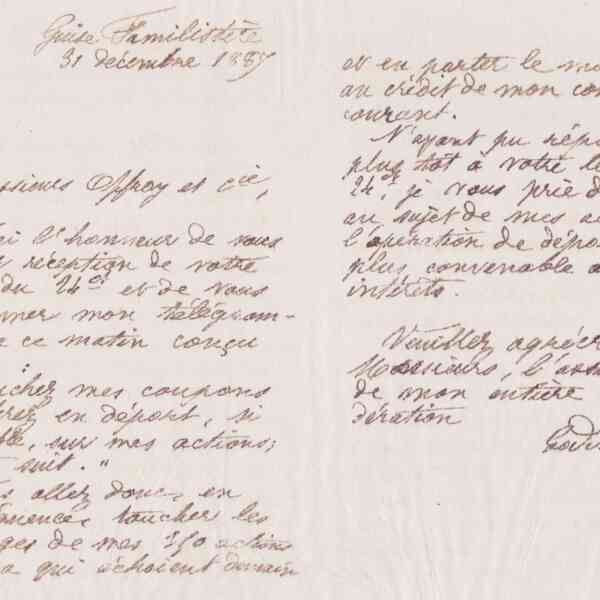 Guise Familistère
31 décembre 1887
Messieurs Offroy et cie,
ai l'honneur de vous
réception de votre
du 24 ct et de vous
mer mon télégram-
ce matin conçu
"
chez mes coupons
en déport, si
sur mes actions;
suit."
allez donc, en
toucher les
de mes 250 actions
qui échoient demain
et en porter le mo
au crédit de mon com
courant.
N'ayant pu répo
plus tôt à votre le
24, je vous prie d
au sujet de mes ac
l'opération de dépo
plus convenable a
intérêts.
Veuillez agréer
Messieurs, l'assu
de mon entière
dération
Godi